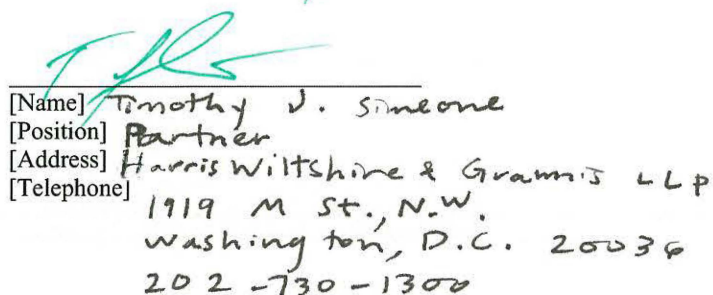 [Name] Timothy J. Simeone
[Position] Partner
[Address] Harris Wiltshire & Grannis LLP
[Telephone]
1919 M St., N.W.
Washington, D.C. 20036
202-730-1300